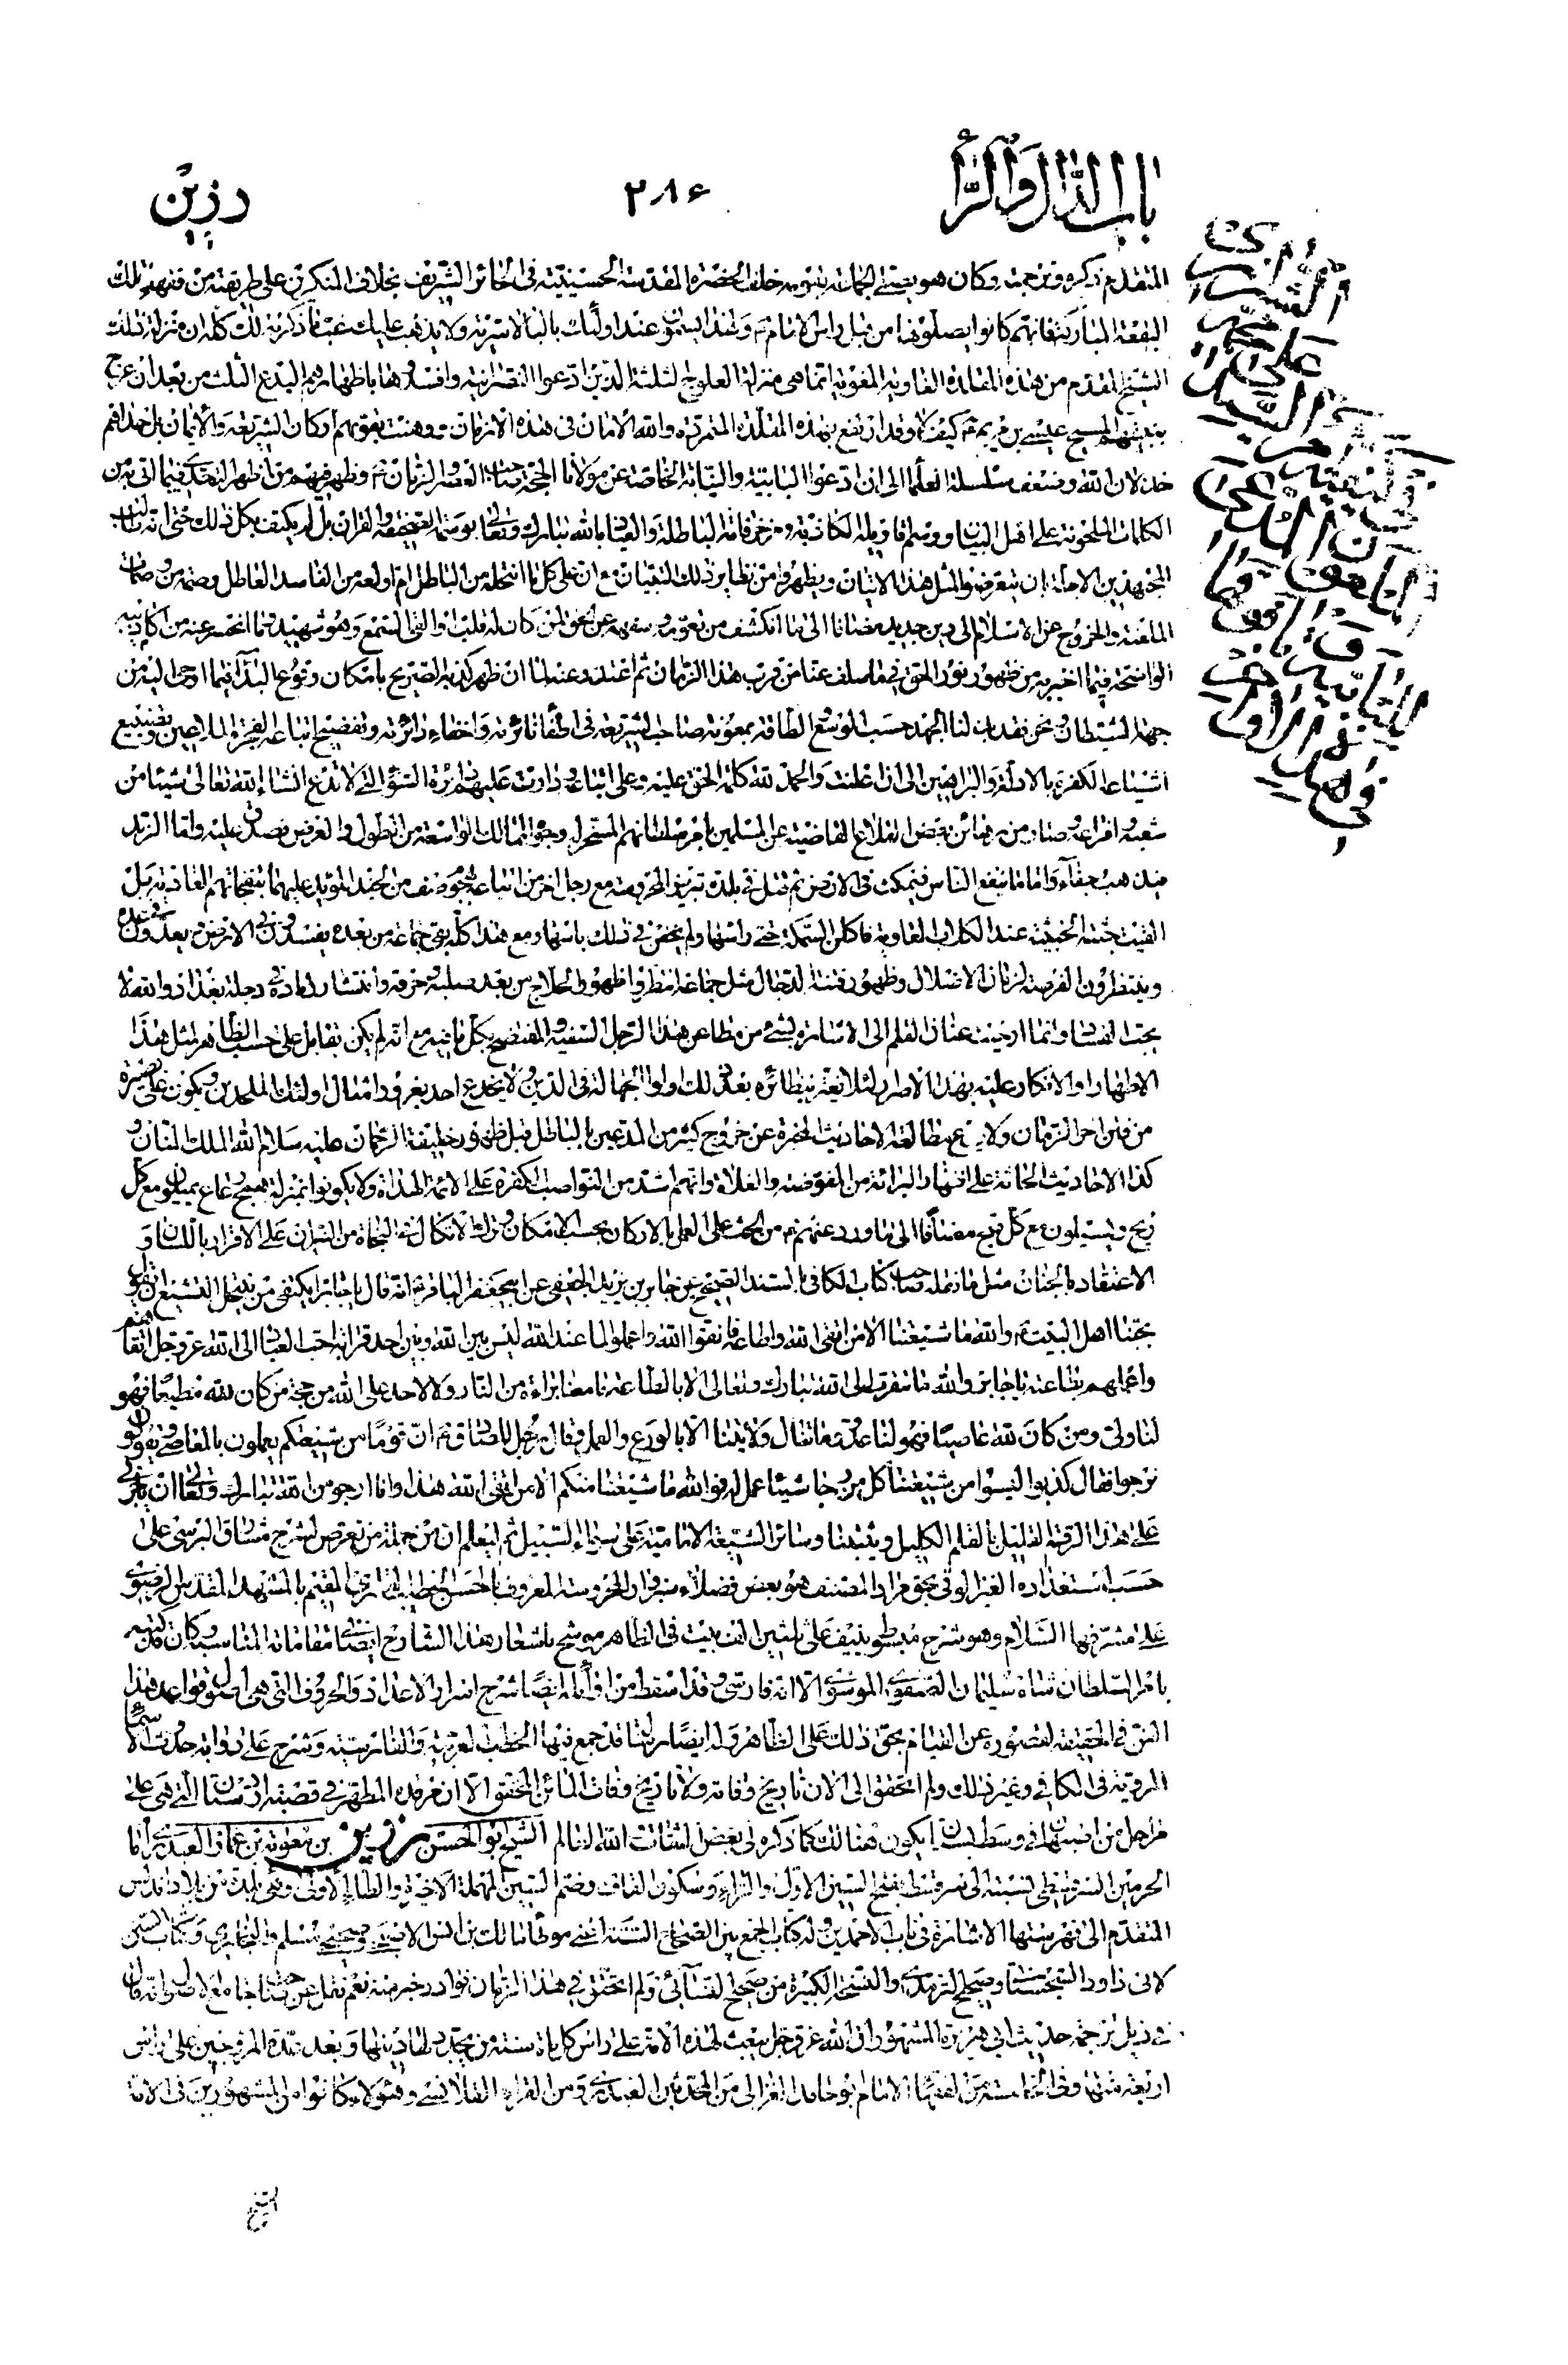 باب الدال والراء
٢٨٦
رزين
المتقدم ذكره وترجمته وكان هو يصلى الجماعة بقومه خلف الحضرة المقدسة الحسينية فى الحائر الشريف بخلاف المنكرين على طريقته من فقهاء تلك
البقعة المباركة فانهم كانوا يصلون بها من قبل راس الامام ع ولهذا يسمون عند اولئك بالبالاسرية ولا يذهب عليك غب ما ذكرته لك كله ان منزلة ذلك
الشيخ المقدم من هذه المقلدة الغاوية المغوية انما هى منزلة العلوج الثلثة الذين ادعوا النصرانية وافسدوها باظهارهم البدع الثلث من بعد ان عرج
بنبيهم المسيح عيسى بن مريم ع كيف لا وقد ارتفع بهذه المقلدة المتمردة والله الأمان فى هذه الازمان ووهنت بقوتهم اركان الشريعة والايمان بل حداهم
خذلان الله وضعف سلسلة العلماء الى ان ادعوا البابية والنيابة الخاصة عن مولانا الحجة صاحب العصر والزمان ع وظهر فيهم من اظهر التحدى فيما اتى به من
الكلمات الملحونة على اهل البيان ووسم اقاويله الكاذبة ومزخرفاته الباطلة والعياذ بالله تبارك وتعالى بوسمة الصحيفة والقران بل لم يكتف بكل ذلك حتى انه طالب
المجتهدين الاجلة ان يتعرضوا لمثل هذا الاتيان ويظهروا من نظاير ذلك التبيان مع ان على كل ما انتحله من الباطل ام اولعه من الفاسد العاطل وصمة من وصمات
الملعنة والخروج عن الاسلام الى دين جديد مضافا الى ما انكشف من تعويه وسفهه عن الحق لمن كان له قلب او القى السمع وهو شهيد وما انحسر عنه من اكاذيبه
الواضحة فيما اخبر به من ظهور نور الحق فى ما سلف عنا من قرب هذا الزمان ثم اعتذر عندنا ان ظهر كذبه الصريح بامكان وقوع البداء فيما اوحى اليه من
جهة الشيطان ونحن فقد بذلنا الجهد حسب الوسع والطاقة بمعونة صاحب الشريعة فى اطفاء نائرته واخفاء دائرته وتفضيح اتباعه الفجرة الملاعين وتضييع
اشياعه الكفرة بالادلة والبراهين الى ان غلبت والحمد لله كلمة الحق عليه وعلى اتباعه ودارت عليهم دائرة السوء التى لا تدع انشاء الله تعالى شيئا من
شعبه وافراعه وصار من رهائن بعض القلاع القاضية عن المسلمين بامر سلطانهم المستحرس وجوه الممالك الواسعة من الطول والعرض فصدق عليه واما الزبد
فيذهب جفاء واما ما ينفع الناس فيمكث فى الارض ثم قتل فى بلدة تبريز المحروسة مع رجل اخر من اتباعه بجوخة صف من الجند الموبل عليهما بتفنجاتهم العادية بل
القيت جثته الخبيثة عند الكلاب العاوية فاكلن السمكة حتى راسها ولم يخض فى ذلك باسها ومع هذا كله بقى جماعة من بعده يفسدون فى الارض ويعدون عدة
وينتظرون الفرصة لزمان الاضلال وظهور فتنة الدجال مثل جماعة انتظروا ظهور الحلاج من بعد صلبه وحرقه وانتشار رماده فى دجلة بغداد والله لا
يحب الفساد وانما ارخيت عنان القلم الى الاشارة لشىء من مطاعن هذا الرجل السفيه والمفتضح بكل ما فيه مع انه لم يكن بقابل على حسب الظاهر لمثل هذا
الاظهار او الانكار عليه بهذا الاصرار لئلا يغتر بنظائره بعد ذلك اولوا الجهالة فى الدين ولا ينخدع احد بغرور امثال اولئك الملحدين ويكون على بصيرة
من فتن اخر الزمان ولا يدع مطالعة الاحاديث المخبرة عن خروج كثير من المدعين بالباطل قبل ظهور خليفة الرحمان عليه سلام الله الملك المنان و
كذا الاحاديث الحاثة على اظهار البرائة من المفوضة والغلاة وانهم اشد من النواصب الكفرة على الائمة الهداة ولا يكونوا بمنزلة همج رعاع يميلون مع كل
ريح ويسيلون مع كل قيع مضافا الى ما ورد عنهم ع من الحث على العمل بالاركان بحسب الامكان وترك الاتكال فى النجاة من النيران على الاقرار باللسان و
الاعتقاد بالجنان مثل ما نقله صاحب كتاب الكافى بالسند الصحيح عن جابر بن يزيد الجعفى عن ابيجعفر الباقر ع انه قال يا جابر ايكتفى من ينتحل التشيع ان يقول
بحبنا اهل البيت ع والله ما شيعتنا الا من اتقى الله واطاعه فاتقوا الله واعملوا لما عند الله ليس بين الله وبين احد قرابة احب العباد الى الله عز وجل اتقاهم
واعملهم بطاعته يا جابر والله ما نتقرب الى الله تبارك وتعالى الا بالطاعة ما معنا براءة من النار ولا لاحد على الله من حجة من كان لله مطيعا فهو
لنا ولى ومن كان لله عاصيا فهو لنا عدو وما تنال ولايتنا الا بالورع والعمل وقال رجل للصادق ع ان قوما من شيعتكم يعملون بالمعاصى ويقولون
نرجو فقال كذبوا ليسوا من شيعتنا كل من رجا شيئا عمل له فوالله ما شيعتنا منكم الا من اتقى الله هذا وانا ارجو من الله تبارك وتعالى ان
على هذا القليل بالقلم الكليل ويثبتنا وسائر الشيعة الامامية على سواء السبيل ثم ليعلم ان من جملة من تعرض لشرح مشارق البرسى على
حسب استعداده الغير الوفى بحق مراد المصنف هو بعض فضلاء سبزوار المحروسة المعروف بالحسن الخطيب القارى المقيم بالمشهد المقدس الرضوى
على مشرفها السلام وهو شرح مبسوط ينيف على ثلثين الف بيت فى الظاهر موشح باشعار هذا الشارح ايضا فى مقاماته المناسبة وكان قد كتبه
بامر السلطان شاه سليمان الصفوى الموسوى الا انه فارسى وقد اسقط من اوائله ايضا شرح اسرار الاعداد والحروف التى هى اصل وقواعد هذا
الفن فى الحقيقة لقصوره عن القيام بحق ذلك على الظاهر وله ايضا رسالة قد جمع فيها الخطب العربية والفارسية وشرح على رواية حدوث الاسماء
المروية فى الكافى وغير ذلك ولم اتحقق الى الان تاريخ وفاته ولا تاريخ وفات الماتن المحقق الا ان مرقده المطهر فى قصبة اردستان التى هى على
مراحل من اصبهان وسط بستان يكون هنالك كما ذكره لى بعض الثقات الله العالم الشيخ ابو الحسن رزين بن معوية بن عمار العبدرى امام
الحرمين السرقسطى نسبته الى سرقسطة بفتح السين الاولى والراء وسكون القاف وضم السين المهملة الاخيرة والطاء الاولى وهى بلدة من بلاد اندلس
المتقدم الى فهرستها الاشارة فى باب الاحمدين وله كتاب الجمع بين الصحاح الستة اعنى موطأ مالك بن انس الاصبحى وصحيحى مسلم والبخارى وكتاب السنن
لابى داود السجستانى وصحيح الترمذى والنسخة الكبيرة من صحيح النسائى ولم اتحقق فى هذا الزمان نوادر خبر منه نعم نقل عن صاحب جامع الاصول انه قال
فى ذيل ترجمة حديث ابى هريرة المشهور ان الله عز وجل يبعث لهذه الامة على راس كل مائة سنة من يجدد لها دينها وبعد عده المروجين على راس
اربعة منها وفى الخامسة من الفقهاء الامام ابو حامد الغزالى من المحدثين العبدرى ومن القراء القلانسى وهؤلاء كانوا من المشهورين فى الامة
الشيخ